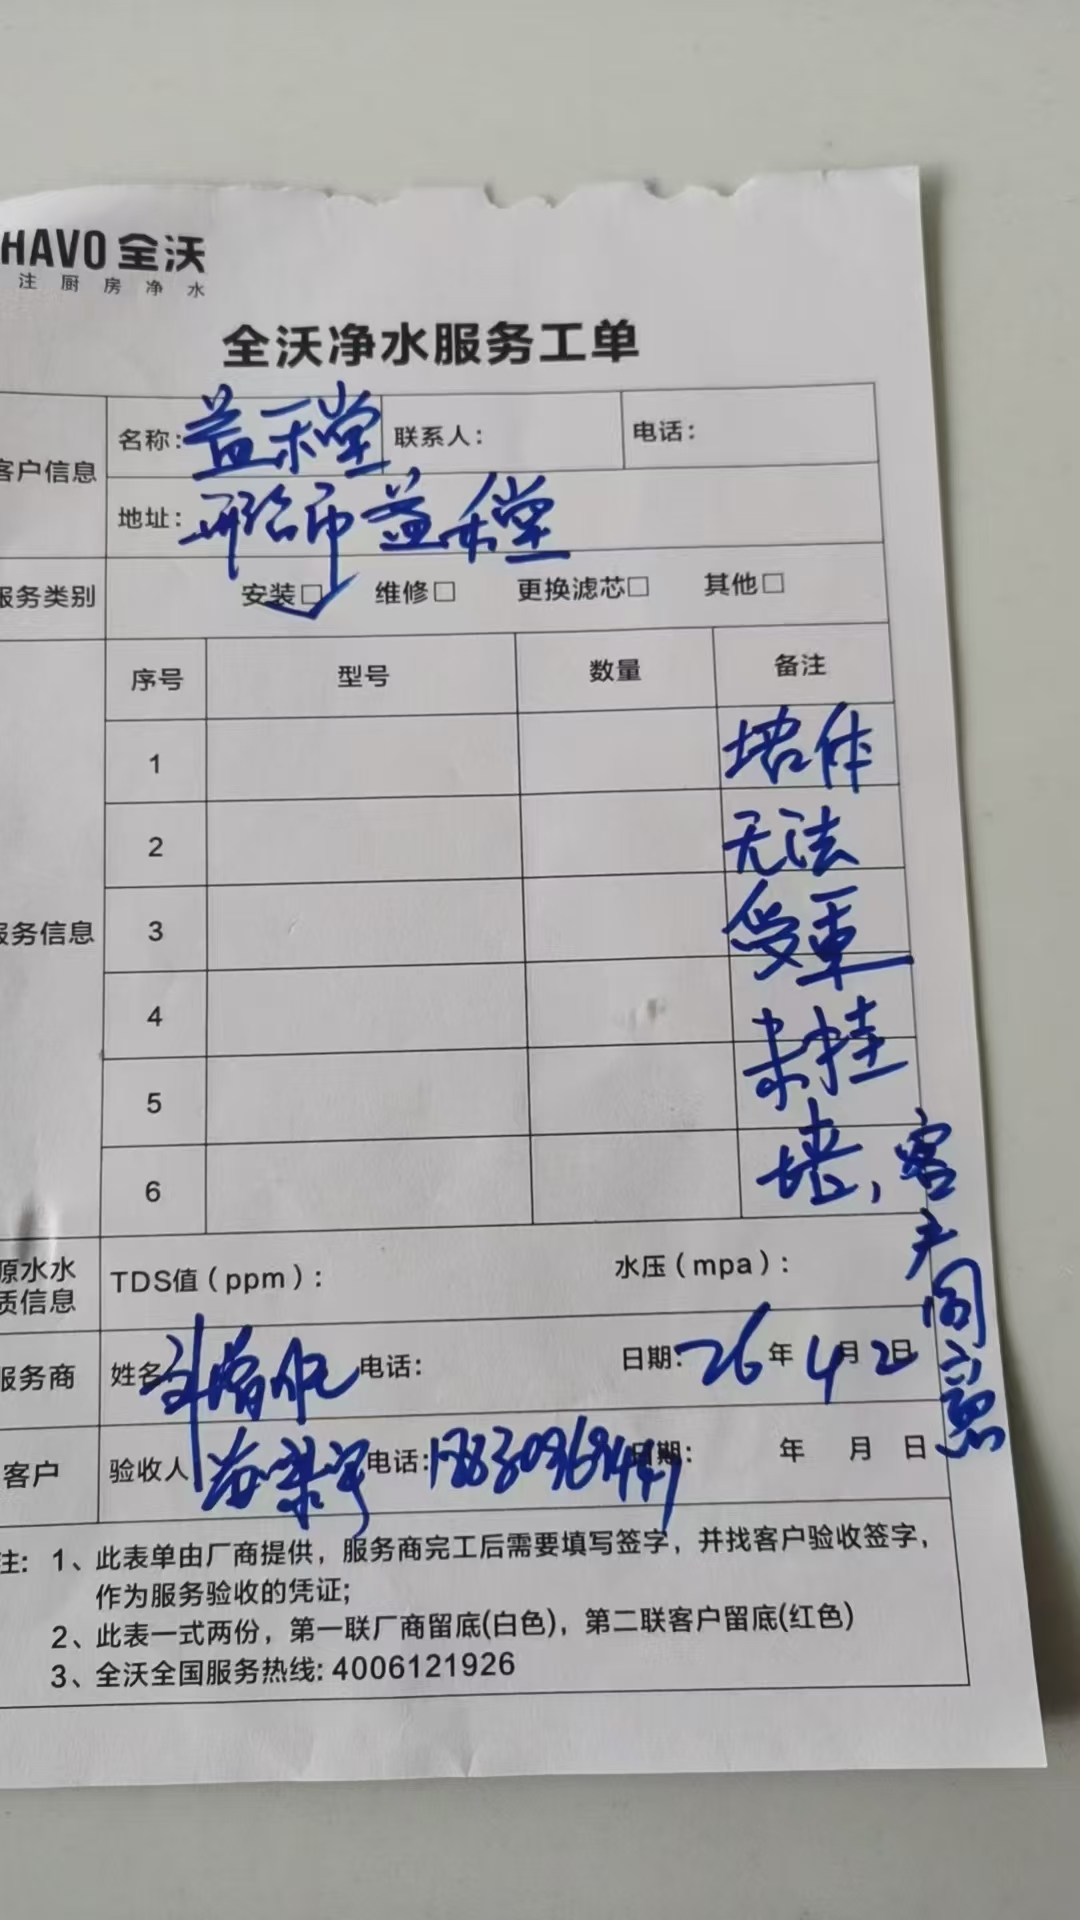 HAVO 全沃
注厨房净水
全沃净水服务工单
客户信息
名称：益禾堂
联系人：
电话：
地址：邢台市益禾堂
服务类别
安装□ 维修□ 更换滤芯□ 其他□
服务信息
序号 型号 数量 备注
1 墙体
2 无法
3 受重
4 未挂
5
6 墙，客户同意
源水水质信息
TDS值（ppm）：
水压（mpa）：
服务商
姓名
电话：
日期：26年4月2日
客户
验收人
电话：
日期： 年 月 日
注：1、此表单由厂商提供，服务商完工后需要填写签字，并找客户验收签字，
作为服务验收的凭证;
2、此表一式两份，第一联厂商留底(白色)，第二联客户留底(红色)
3、全沃全国服务热线: 4006121926